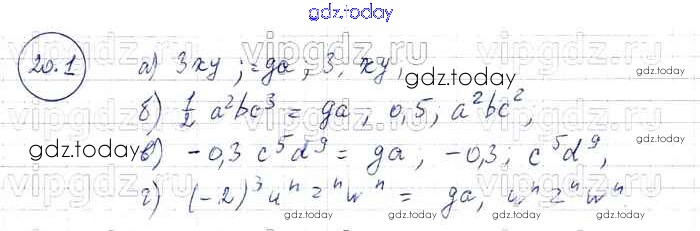 gdz.today
vipgdz.ru vipgdz.ru
20.1 а) 3xy ; = да ; 3, xy,
gdz.today
б) 1/2 a²bc³ = да, 0,5, a²bc²,
gdz.today
gdz.today
в) -0,3 c⁵d⁹ = да, -0,3; c⁵d⁹,
vipgdz.ru vipgdz.ru
г) (-2)³ uⁿzⁿwⁿ = да, uⁿzⁿwⁿ
gdz.today gdz.today gdz.today